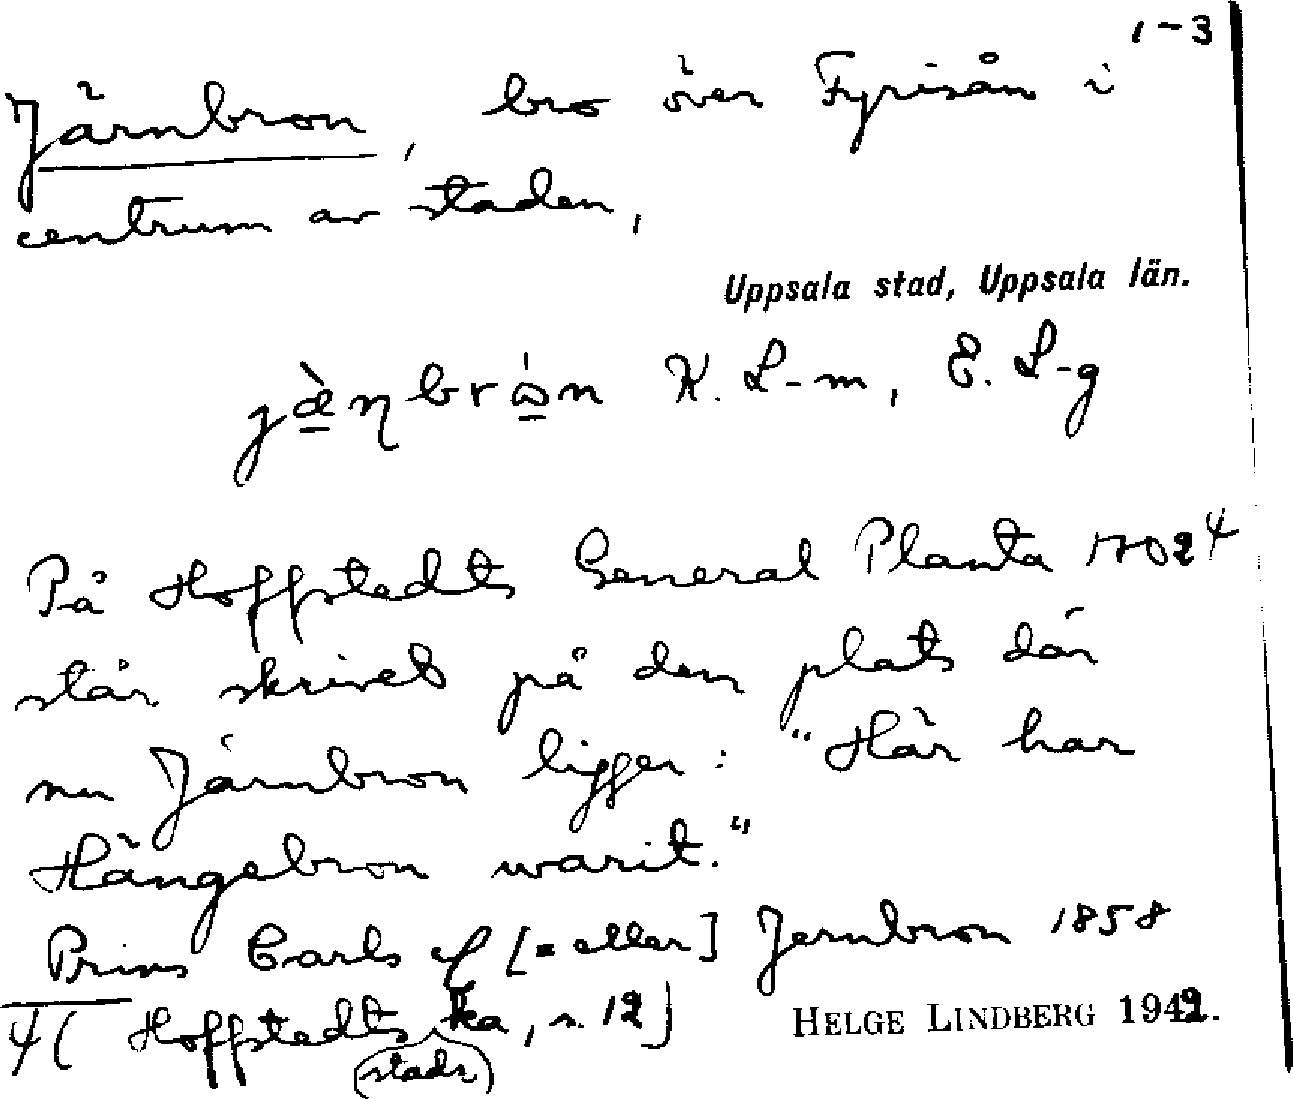 1-3
Järnbron, bro över Fyrisån i
centrum av staden,
Uppsala stad, Uppsala län.
K. L-m, E. L-g
På Hoffstedts General Planta 1702 4
står skrivet på den plats där
nu Järnbron ligger: "Här har
Hängebron warit."
Prins Carls [= eller] Jernbron 1858
4( Hoffstedts ka, s. 12)
(stads)
HELGE LINDBERG 1942.